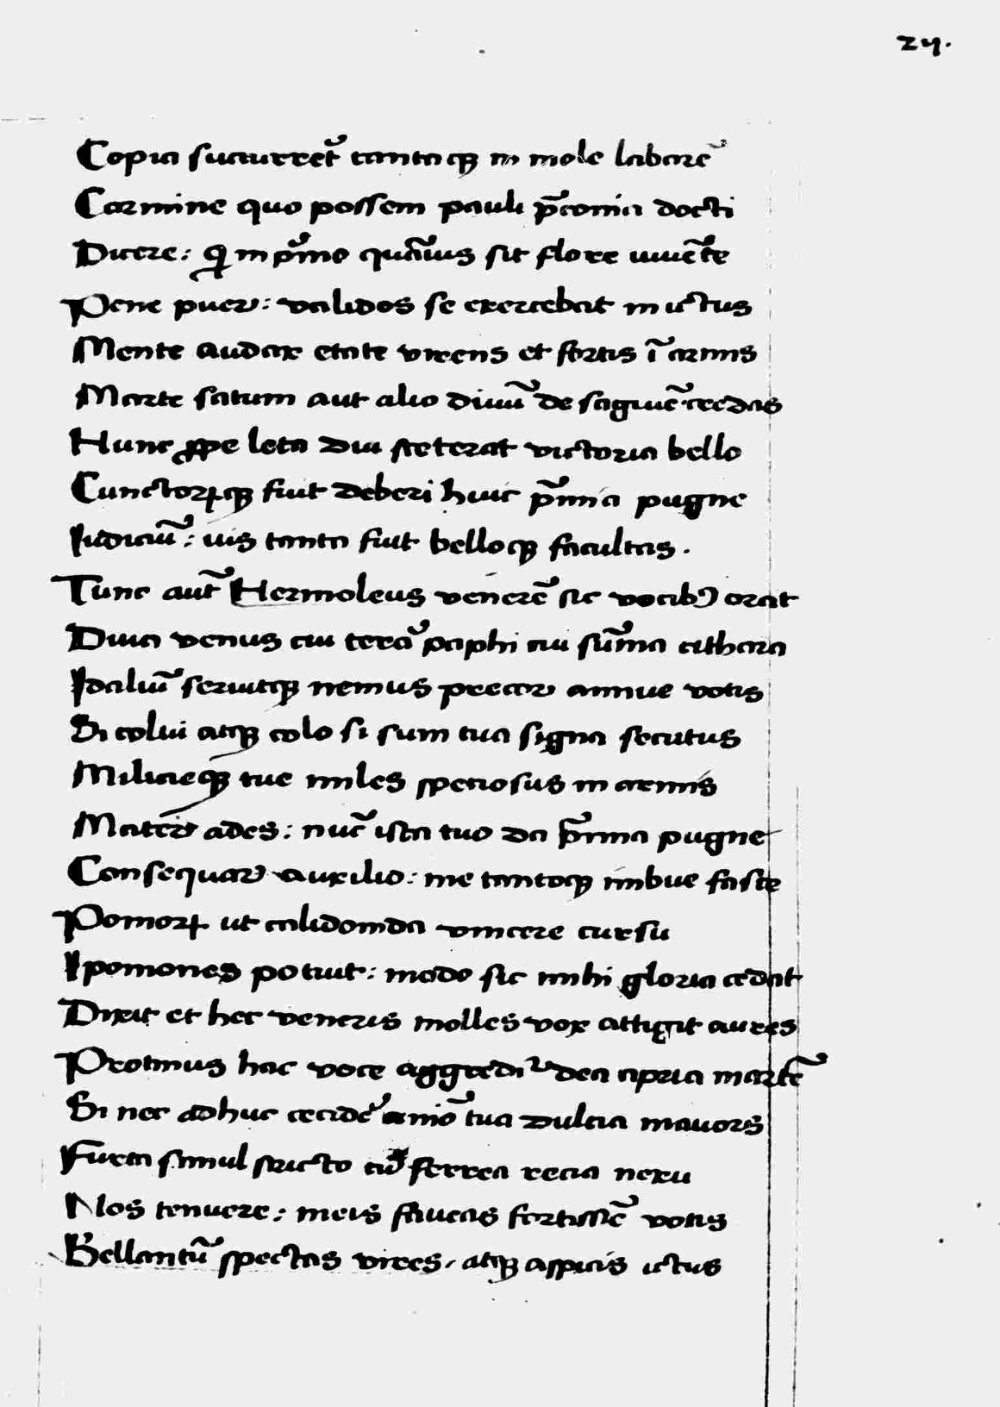 24.
Copia sucurret̃ tantaqꝫ in mole labarẽ
Carmine quo possem pauli p̃conia docti
Dicere: Qi in p̃mo quãuis sit flore iuuẽte
Pene puer: validos se exercebat in ictus
Mente audax etate virens et fortis ĩ armis
Marte satum aut alio diuũ de sãguĩe credas
Hunc ꝓpe leta diu steterat victoria bello
Cunctorꝝqꝫ fiut deberi huic p̃mia pugne
Iudiciũ: uis tanta fuit belloqꝫ facultas.
Tunc aut̃ Hermoleus venerẽ sic vocibꝰ orat
Diua venus cui terã paphi cui sũma cithara
Idaliũ seruitqꝫ nemus precor annue votis
Si colui atqꝫ colo si sum tua signa secutus
Milicieqꝫ tue miles speciosus in armis
Mater ades: nũc ista tuo da p̃mia pugne
Consequar auxilio: me tantoqꝫ imbue fastẽ
Pomoꝝ ut calidonida vincere cursu
Ipomones potuit: modo sic mihi gloria cedat
Dixit et hec veneris molles vox attigit aures
Protinus hac voce aggredit̃ dea cipria martẽ
Si nec adhuc cecidẽ animo tua dulcia mauors
Furta simul stricto cũ ferrea recia nexu
Nos tenuere: meis faueas fortissiẽ votis
Bellantũ spectas vires, atqꝫ aspicis ictus